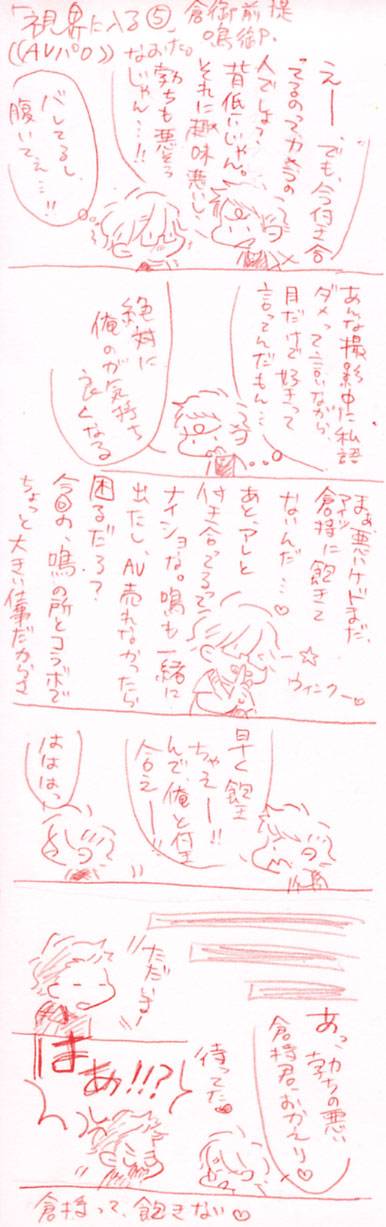 「視界に入る⑤ 倉御前提
鳴御P.
((AVパロ)) なおだ。
えー、でも、今付き合
ってるのってカメラの
人でしょ？
背低いじゃん。
それに趣味悪いし、
勃ちも悪そう
なじゃん…!!
バレてるし、
腹いてぇ…!!
あんな撮影中に私語
ダメって言いながら、
目だけで好きって
言ってんだもん…
絶対に
俺のが気持ち
良くなる
まぁ、悪いケドまだ、
アイツ
倉持に飽きて
ないんだ…♡
あと、アレと
付き合ってるって
ナイショな。鳴も一緒に
出たし、AV売れなかったら
困るだろ？
今回の、鳴の所とコラボで
ちょっと大きい仕事だからさ
ー☆
ウィンクー♡
早く飽き
ちゃえー!!
んで、俺と付き
合えー!!
はははっ
ただいまー
あっ、勃ちの悪い
倉持君、おかえり♡
待ってた♥
はぁ!!?
倉持って、飽きない♡